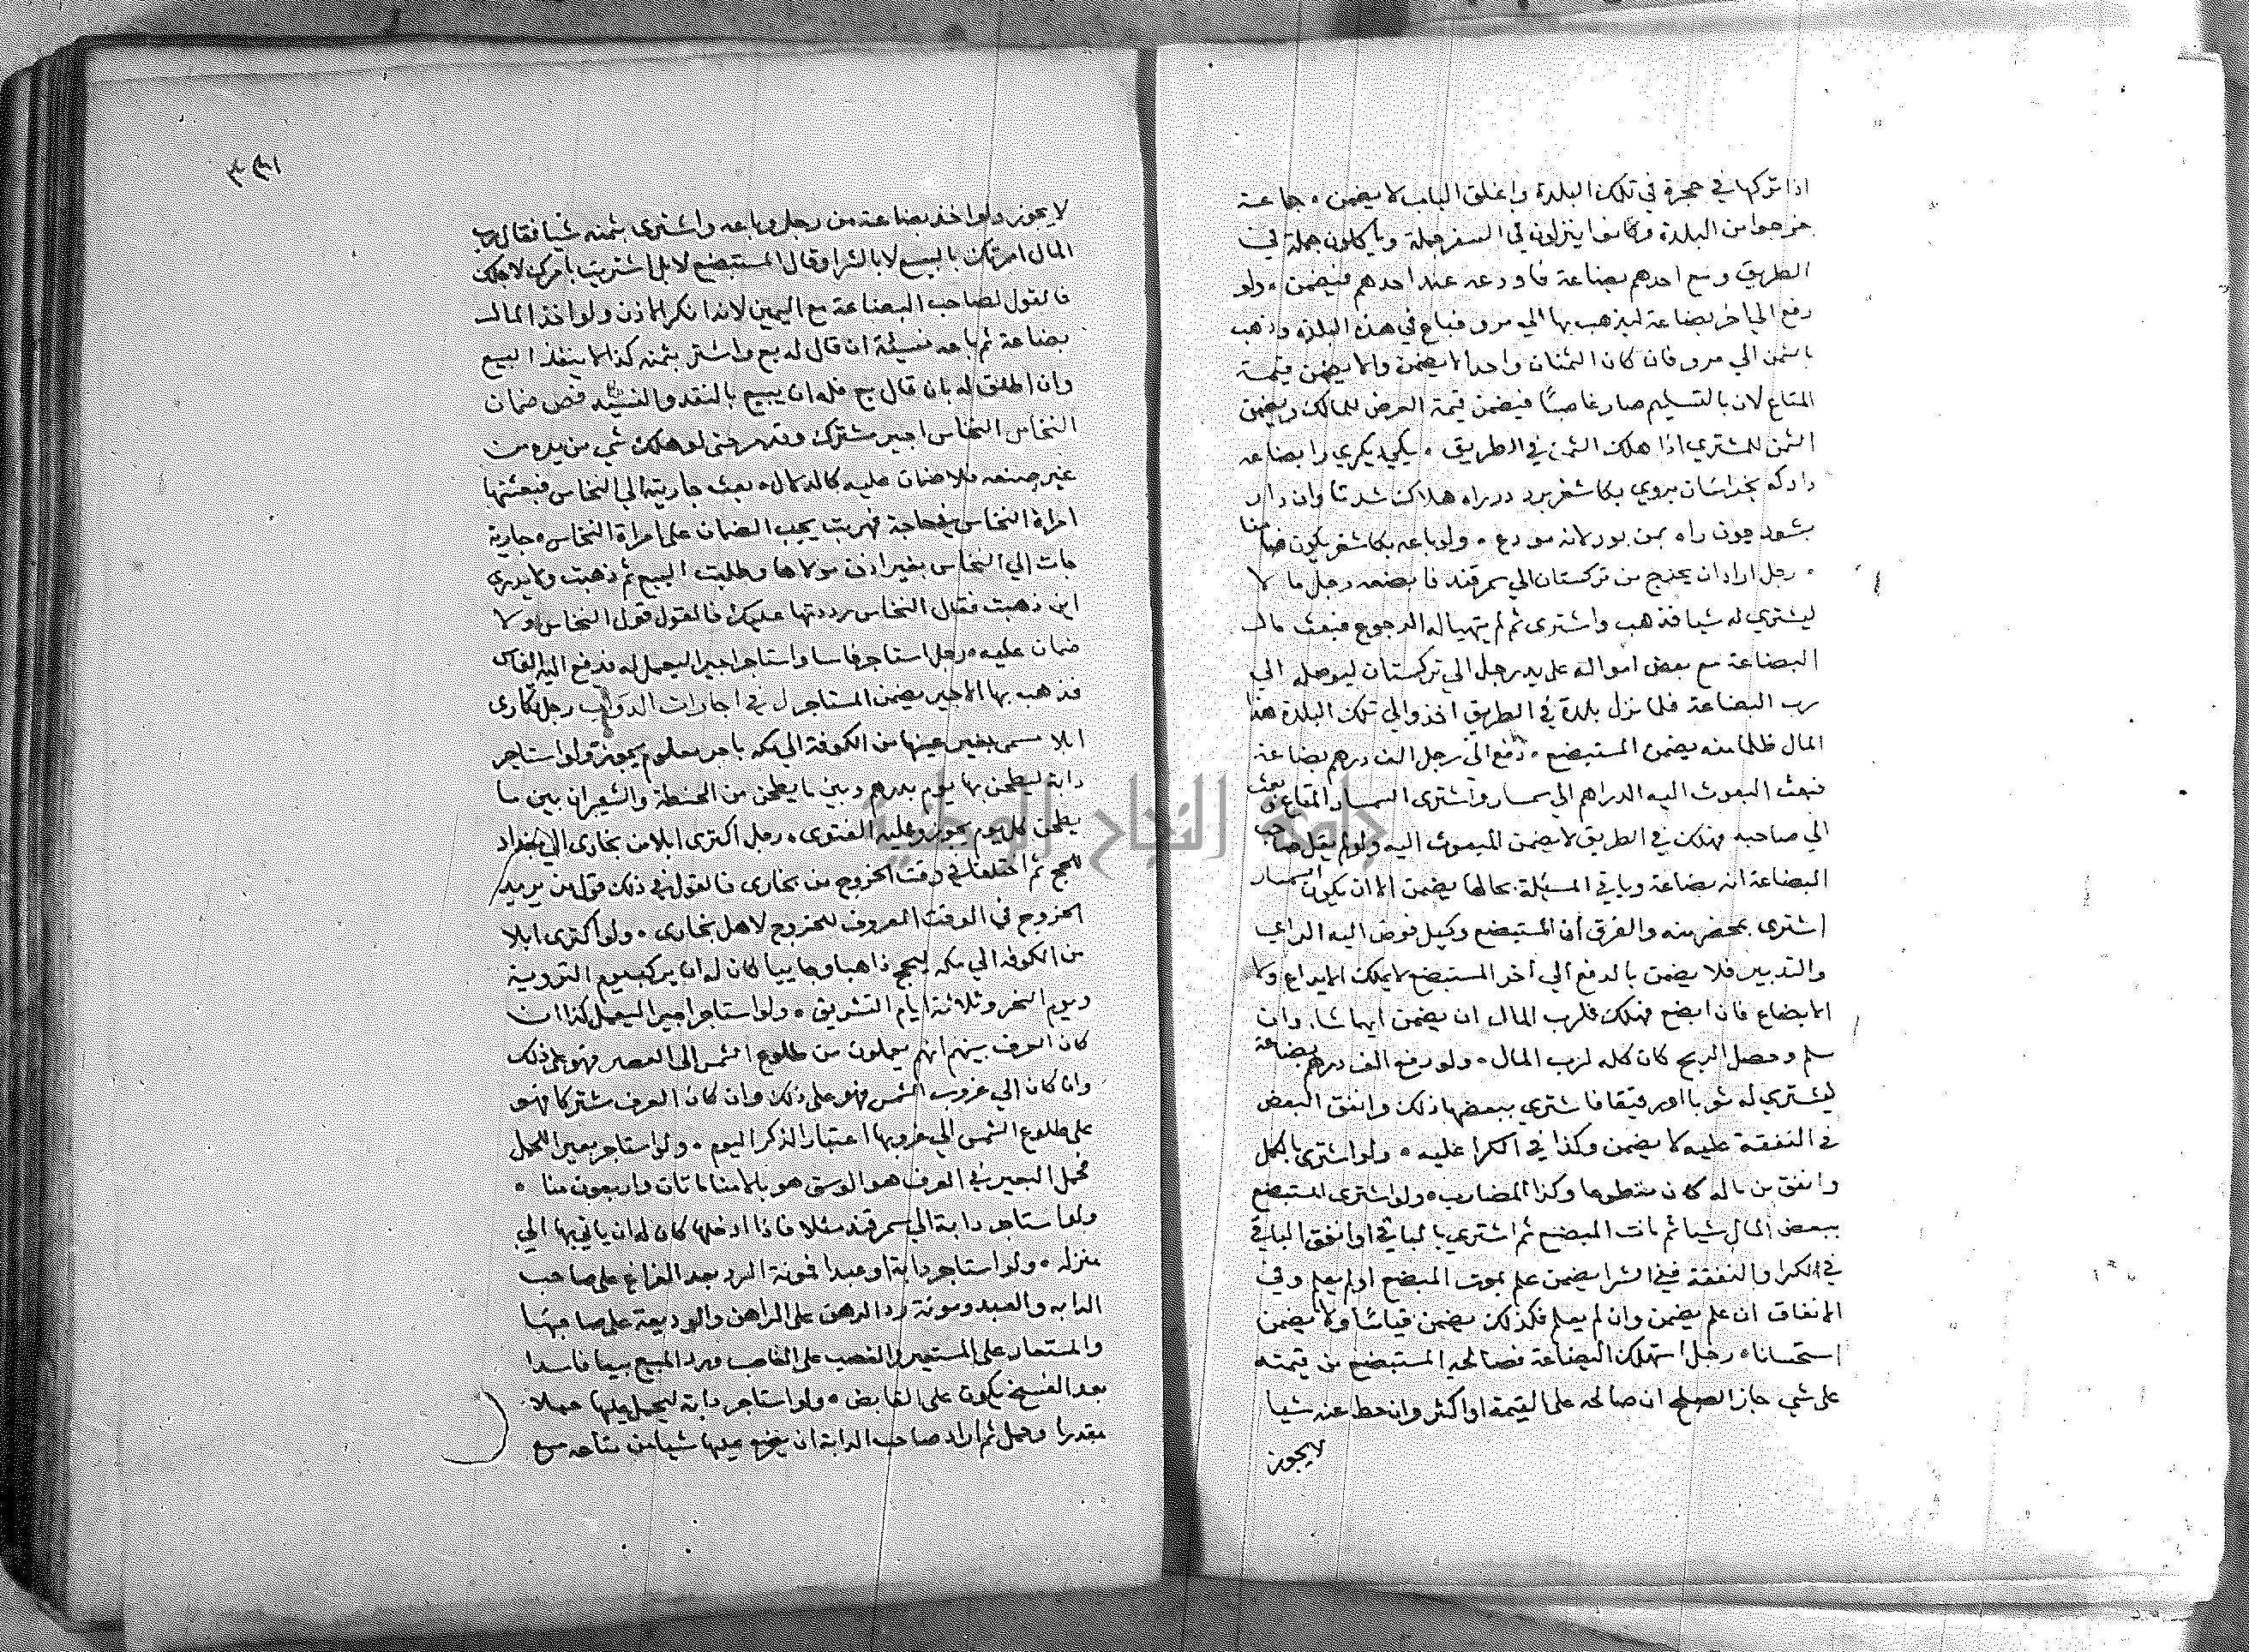 اذا تركها في حجرة في تلك البلدة واغلق الباب لا يضمن ٠ جماعة
خرجوا من البلدة وكانوا ينزلون في السفر جملة وياكلون جملة في
الطريق ومع احدهم بضاعة فاودعه عند احدهم فيضمن ٠ ولو
دفع الي اخر بضاعة ليذهب بها الي مرو فباع في هذه البلدة وذهب
بالثمن الي مرو فان كان الثمنان واحدا لا يضمن والا يضمن قيمة
المتاع لان بالتسليم صار غاصبا فيضمن قيمة العرض للمالك ويضمن
الثمن للمشتري اذا هلك الثمن في الطريق ٠ يكي ديكري را بضاعه
داد كه بخراسان بروي بكاشغر برد در راه هلاك شد تاوان دار
بشود چون راه بود لانه مودع ٠ ولو باعه بكاشغر يكون ضامنا
٠ رجل اراد ان يخرج من تركستان الي سمرقند فابضعه رجل مالا
ليشتري له شيا فذهب واشترى ثم لم يتهيا له الرجوع فبعث مال
البضاعة مع بعض امواله على يد رجل الي تركستان ليوصله الي
رب البضاعة فلما نزل بلدة في الطريق اخذ والي تلك البلدة هذا
المال ظلما منه يضمن المستبضع ٠ دفع الى رجل الف درهم بضاعة
فبعث المبعوث اليه الدراهم الي سمسار واشترى السمسار المتاع وبعث
الي صاحبه فهلك في الطريق لا يضمن المبعوث اليه ولو لم يقل صاحب
البضاعة انه بضاعة وباقي المسئلة بحالها يضمن الا ان يكون السمسار
اشترى بمحضر منه والفرق ان المستبضع وكيل فوض اليه الراي
والتدبير فلا يضمن بالدفع الي آخر المستبضع لا يملك الايداع ولا
الابضاع فان ابضع فهلك فلرب المال ان يضمن ايهما شاء وان
سلم وحصل الربح كان كله لرب المال ٠ ولو دفع الف درهم بضاعة
ليشتري له ثوبا او رقيقا فاشترى ببعضها ذلك وانفق البعض
في النفقة عليه لا يضمن وكذا في الكرا عليه ٠ ولو اشترى بالكل
وانفق من ماله كان متطوعا وكذا المضارب ٠ ولو اشترى المستبضع
ببعض المال شيا ثم مات المبضع ثم اشتري بالباقي او انفق الباقي
في الكرا والنفقة ففي الشرا يضمن علم بموت المبضع او لم يعلم وفي
الانفاق ان علم يضمن وان لم يعلم فكذلك يضمن قياسا ولا يضمن
استحسانا ٠ رجل استهلك البضاعة فصالحه المستبضع من قيمته
على شي جاز الصلح ان صالحه على القيمة او اكثر وان حط عنه شيا
لا يجوز
لا يجوز ولو اخذ بضاعة من رجل وباعه واشترى بثمنه شيا فقال رب
المال امرتك بالبيع لا بالشرا وقال المستبضع لا بل اشتريت بامرك لاجلك
فالقول لصاحب البضاعة مع اليمين لانه انكر الاذن ولو اخذ المال
بضاعة ثم باعه نسيئة ان قال له بع واشتر بثمنه كذا لا ينفذ البيع
وان اطلق له بان قال بع فله ان يبيع بالنقد والنسيئة فص ضمان
النخاس النخاس اجير مشترك حتى لو هلك شي من يده من
غير صنعه فلا ضمان عليه كالدلال ٠ بعث جاريته الي النخاس فبعثتها
امراة النخاس في حاجة فهربت يجب الضمان على امراة النخاس ٠ جارية
جات الي النخاس بغير اذن مولاها وطلبت البيع ثم ذهبت ولا يدرى
اين ذهبت فقال النخاس رددتها عليك فالقول قول النخاس ولا
ضمان عليه ٠ رجل استاجر فاسا واستاجر اجيرا ليعمل له فدفع اليه الفاس
فذهب بها الاجير يضمن المستاجر في اجارات الدواب رجل تكارى
ابلا مسمى بغير عينها من الكوفة الي مكه باجر معلوم يجوز ولو استاجر
دابة ليطحن بها يوم بدرهم وبين ما يطحن من الحنطة والشعير ان بين ما
يطحن كل يوم يجوز وعليه الفتوى ٠ رجل اكترى ابلا من بخارى الي بغداد
للحج ثم اختلفا في وقت الخروج من بخارى فالقول في ذلك قول من يريد
الخروج في الوقت المعروف للخروج لاهل بخارى ٠ ولو اكترى ابلا
من الكوفة الي مكه ليحج ذاهبا وجاييا كان له ان يركب يوم التروية
ويوم النحر وثلاثة ايام التشريق ٠ ولو استاجر اجيرا ليعمل كذا ان
كان العرف بينهم انهم يعملون من طلوع الشمس الى العصر فهو على ذلك
وان كان الي غروب الشمس فهو على ذلك وان كان العرف مشتركا فهو
على طلوع الشمس الي غروبها اعتبارا لذكر اليوم ٠ ولو استاجر بعيرا للحمل
فحمل البعير في العرف هو الوسق هو بالامنا ماتان واربعون منا ٠
ولو استاجر دابة الي سمرقند مثلا فاذا ادخلها كان له ان ياتي بها الي
منزله ٠ ولو استاجر دابة او عبدا فمونة الرد بعد الفراغ على صاحب
الدابه والعبد ومونة رد الرهن على الراهن والوديعة على صاحبها
والمستعار على المستعير والغصب على الغاصب ورد المبيع بيعا فاسدا
بعد الفسخ يكون على القابض ٠ ولو استاجر دابة ليحمل عليها حملا
مقدرا وحمل ثم اراد صاحب الدابة ان يضع عليها شيا من متاعه مع
جامعة النجاح الوطنية